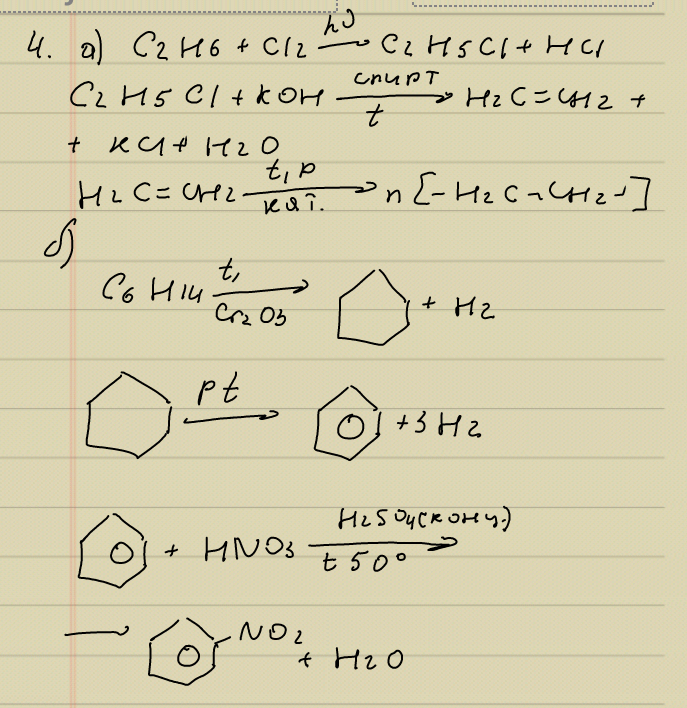 4. а) C2H6 + Cl2 hν → C2H5Cl + HCl
C2H5Cl + KOH спирт t → H2C=CH2 +
+ KCl + H2O
H2C=CH2 t, p кат. → n[-H2C-CH2-]
б)
C6H14 t, Cr2O3 → + H2
Pt → + 3H2
+ HNO3 H2SO4(конц.) t 50° →
→ NO2 + H2O